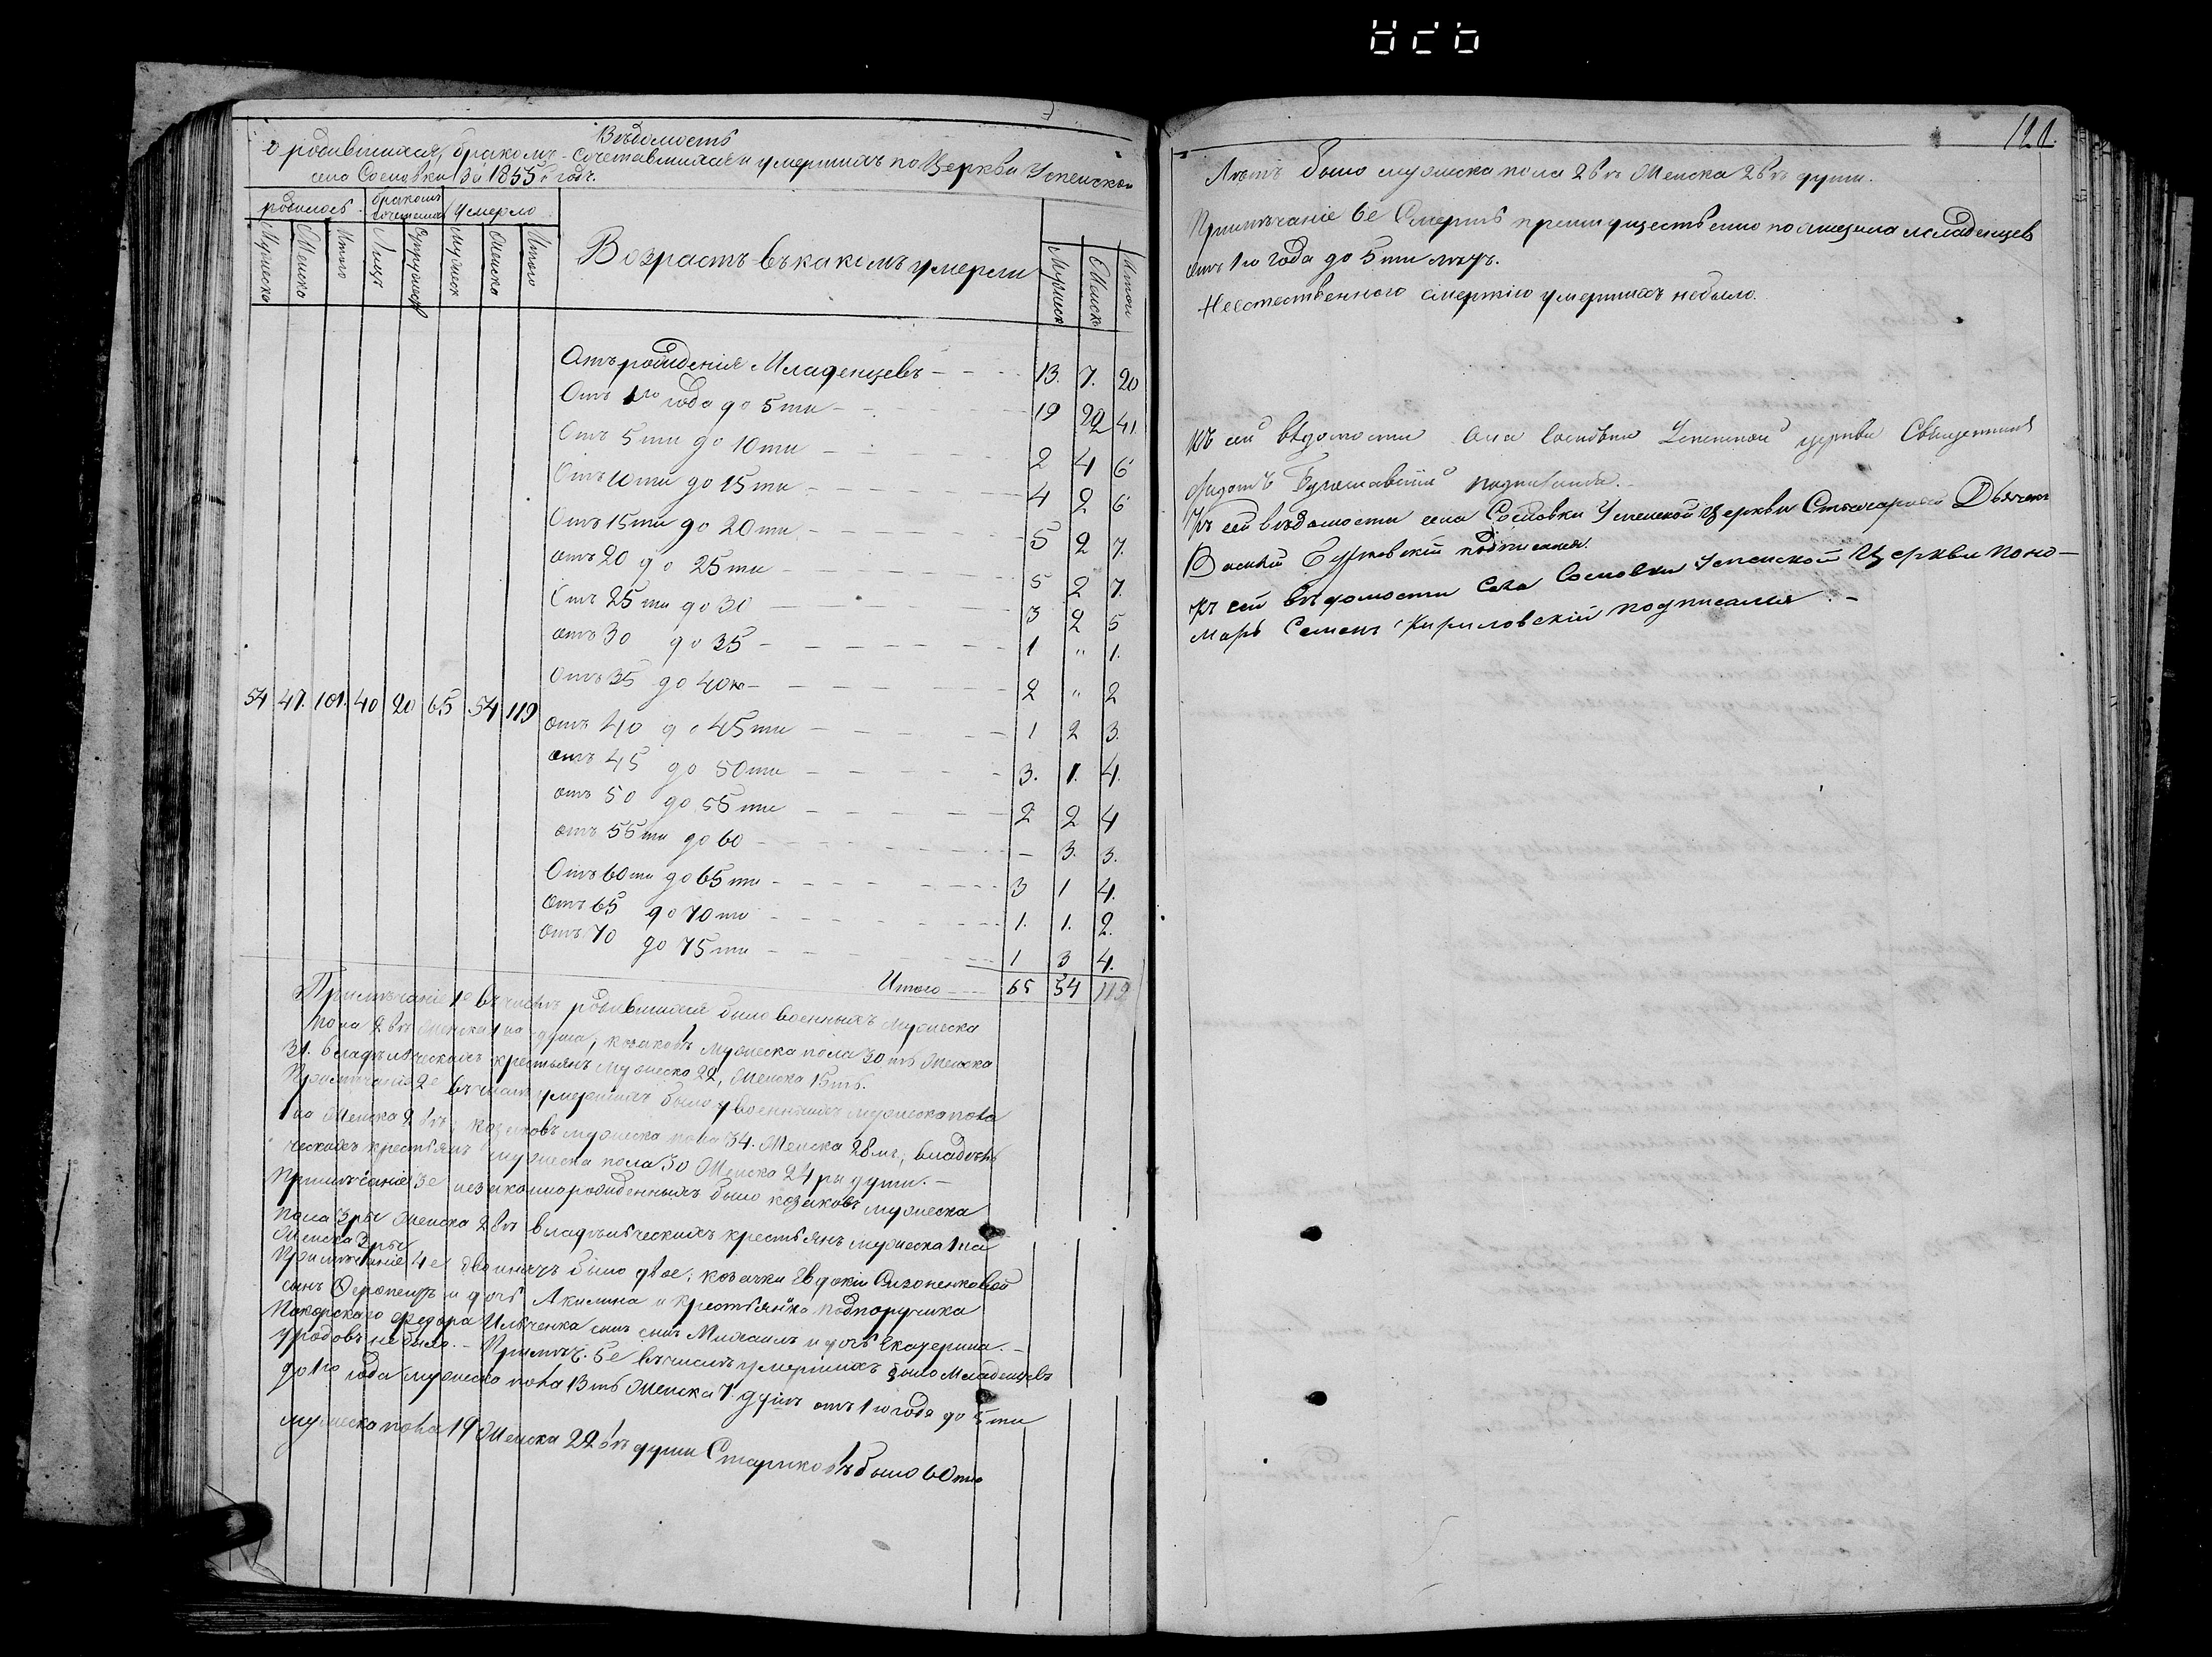 Вѣдомость
о родившихся, бракомъ-сочетавшихся и умершихъ по Церкви Успенской
села Сосновки за 1855й годъ.
родилось бракомъ сочетал. Умерло
Мужеска Женска Итого Лицъ Супружеств Мужеск Женска Итого
Возрастъ въ какомъ умерли
Мужеск Женск Итого
Отъ рожденія Младенцевъ 13. 7. 20
Отъ 1го года до 5ти 19 22 41
Отъ 5ти до 10ти 2 4 6
Отъ 10ти до 15ти 4 2 6
Отъ 15ти до 20ти 5 2 7.
отъ 20 до 25ти 5 2 7.
Отъ 25ти до 30 3 2 5
отъ 30 до 35 1 " 1.
Отъ 35 до 40ка 2 " 2
54 47. 101. 40 20 65 54 119
отъ 40 до 45ти 1 2 3.
отъ 45 до 50ти 3. 1. 4.
отъ 50 до 55ти 2 2 4
отъ 55ти до 60 – 3. 3.
Отъ 60ти до 65ти 3 1 4.
отъ 65 до 70ти 1. 1. 2.
Отъ 70 до 75ти 1 3 4.
Итого 65 54 119
Примѣчаніе 1е въ числѣ родившихся было военныхъ мужеска
пола 2вѣ женска 1на душа, козаковъ мужеска пола 30ть женска
31. владѣльческихъ крестьянъ мужеска 22, женска 15ть.
Примѣчаніе 2е въ числѣ умершихъ было у военныхъ мужеска пола
1на женска 2вѣ, козаковъ мужеска пола 34. женска 28мь, владѣль
ческихъ крестьянъ мужеска пола 30 женска 24ры души.–
Примѣчаніе 3е незаконнорожденныхъ было козаковъ мужеска
пола 3ри женска 2вѣ владѣльческихъ крестьянъ мужеска 1на
женска 3ри
Примѣчаніе 4е двойнячъ было двое; козачки Евдокіи
сынъ и дочь Акилина и крестьянина подпоручика
Федора Ильченка сынъ сынъ Михаилъ и дочь Екатерина.–
уродовъ не было.– Примѣч. 5е въ числѣ умершихъ было Младенцевъ
до 1го года мужеска пола 13ть женска 7. душъ отъ 1го года до 5ти
мужеска пола 19 женска 22вѣ души Стариковъ было 60ти
121.
Лѣтъ было мужеска пола 2вѣ женска 2вѣ души.
Примѣчаніе 6е Смерть преимущественно похищала младенцев
отъ 1го года до 5ти лѣтъ.
Неестественною смертію умершихъ небыло.
Къ сей вѣдомости села Сосновки Успенской церкви Священникъ
подписался.
Къ сей вѣдомости села Сосновки Успенской Церкви Стихарный Дьячекъ
Василій подписался.
Къ сей вѣдомости Села Сосновки Успенской Церкви Поно–
марь Семенъ Кириловскій подписался.–